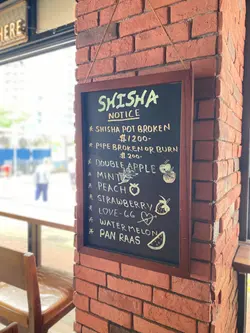 HERE.
SHISHA
NOTICE
* SHISHA POT BROKEN
$1200-
* PIPE BROKEN OR BURN
$200-
* DOUBLE APPLE
* MINT
* PEACH
* STRAWBERRY
* LOVE-66
* WATERMELON
* PAN RAAS